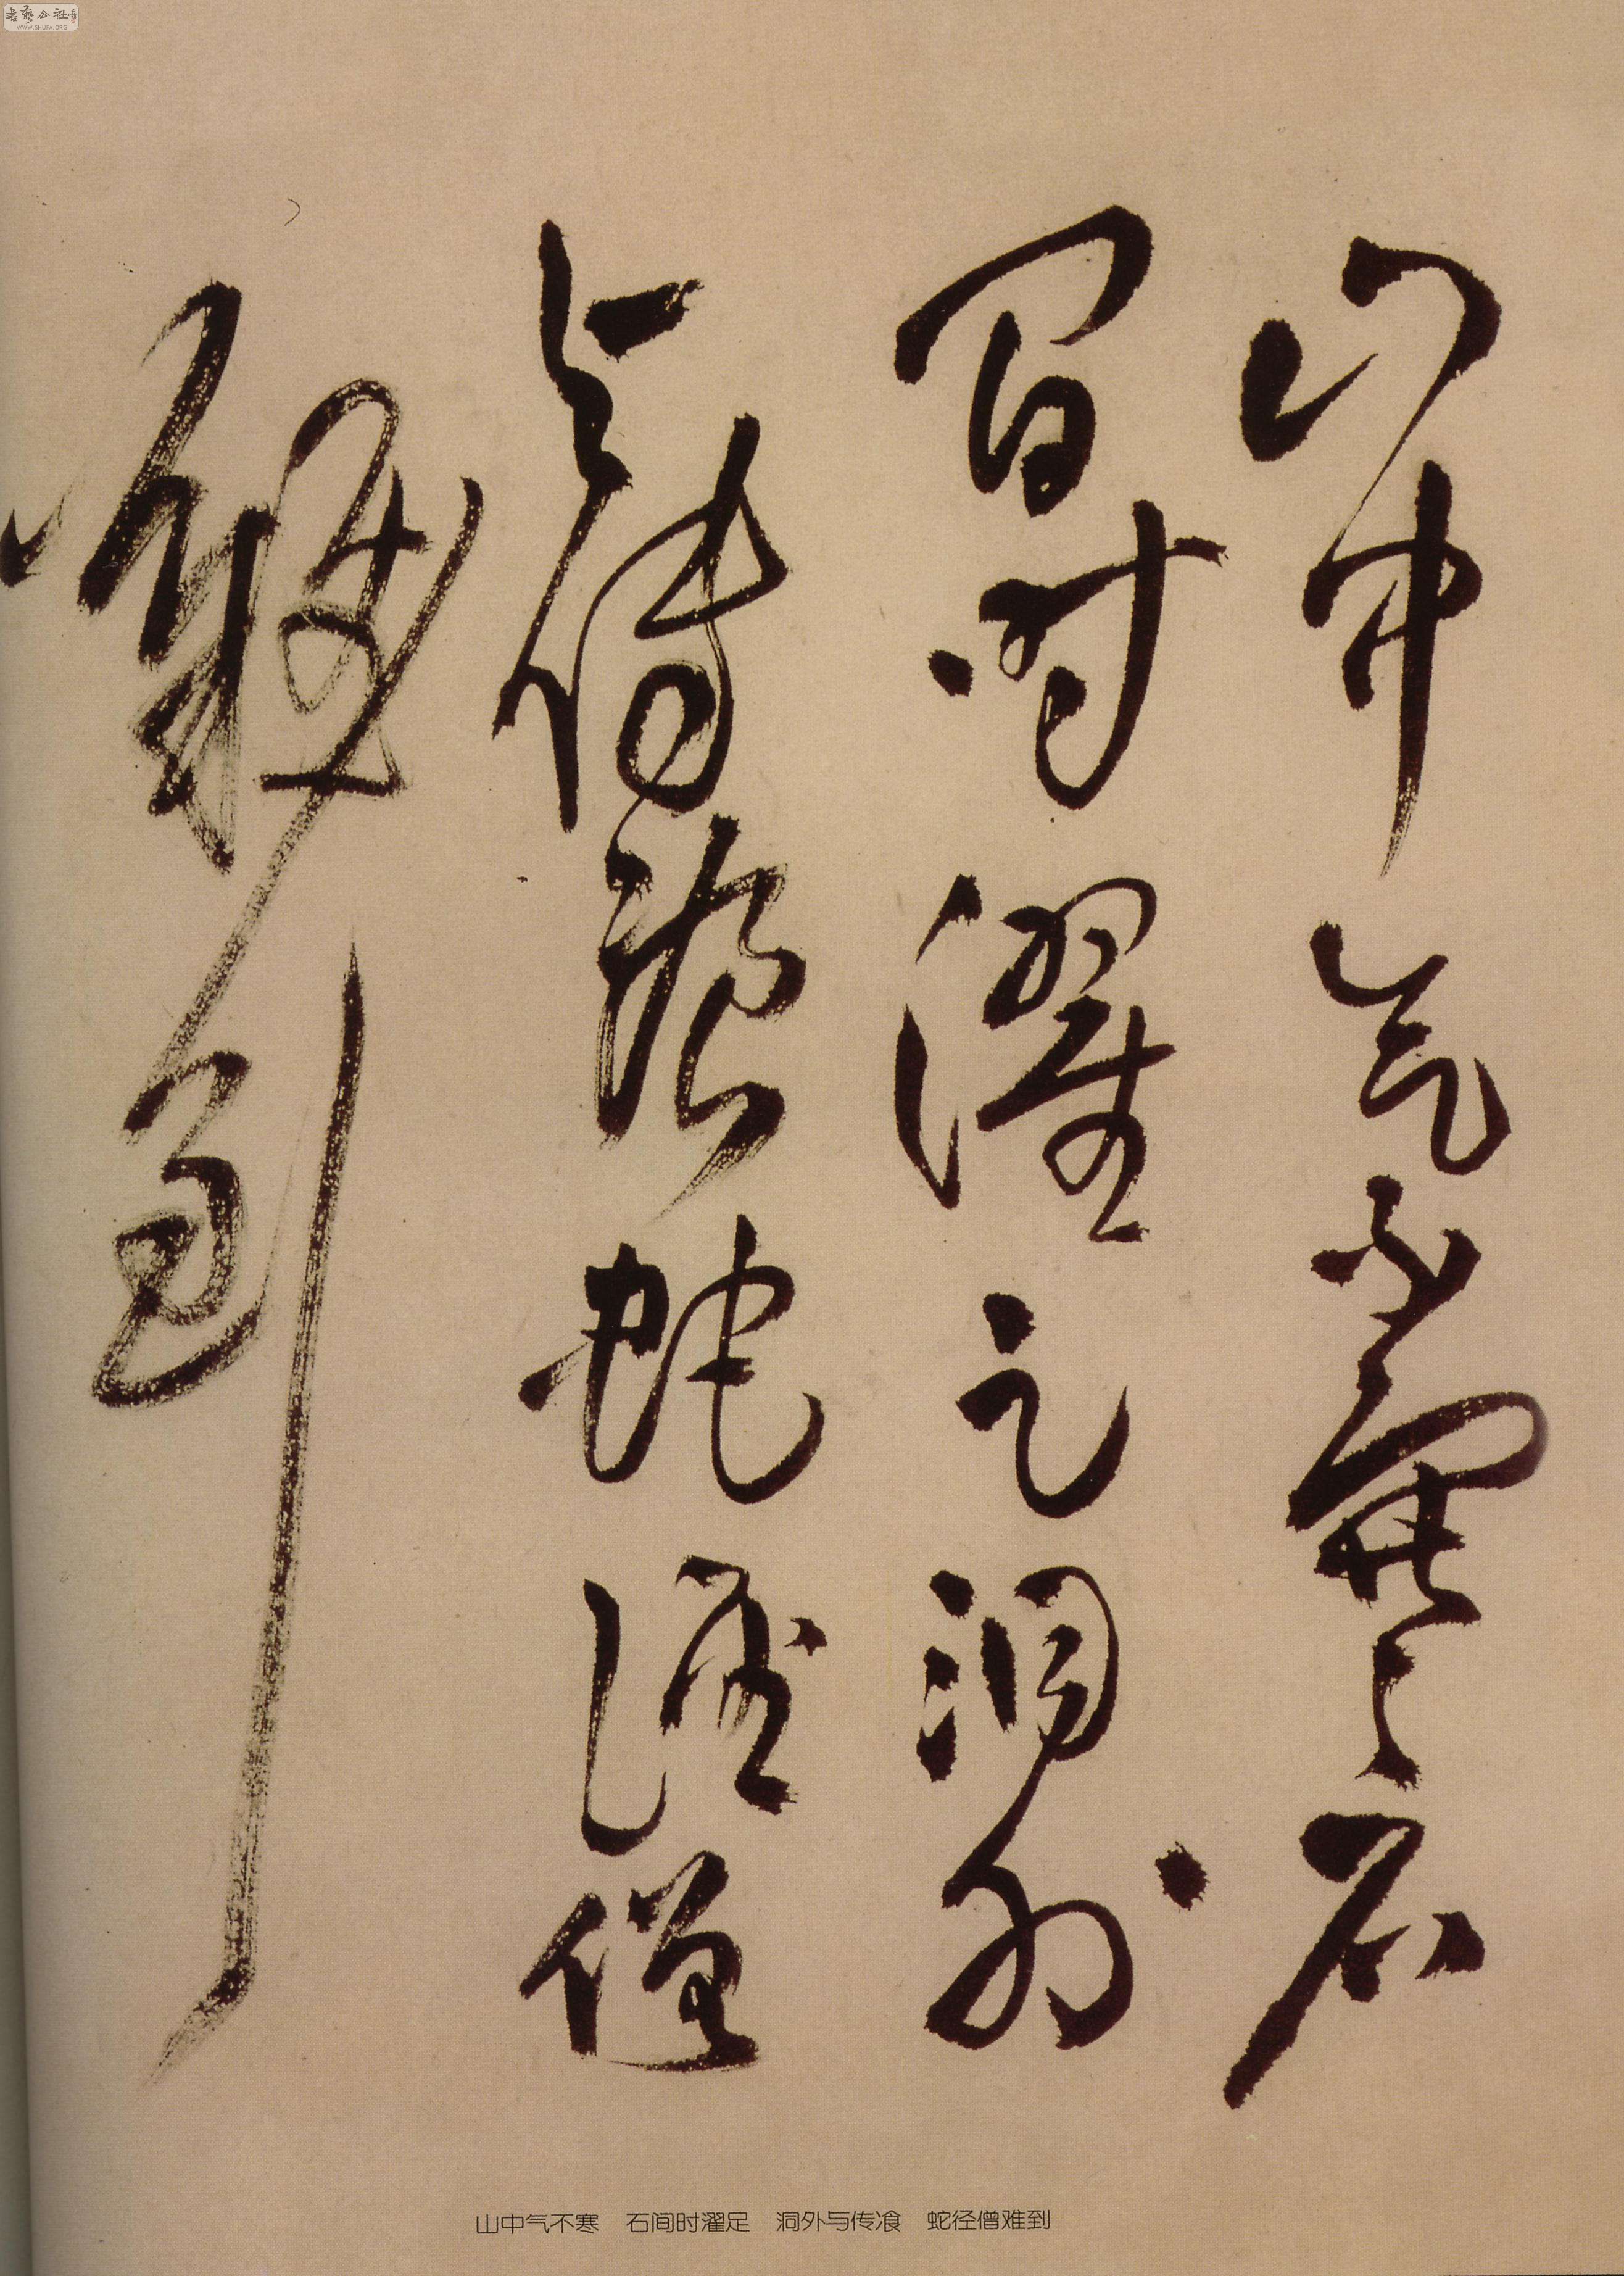 山中气不寒石
间时濯足洞外
与传飡蛇径僧
难到
山中气不寒 石间时濯足 洞外与传飡 蛇径僧难到
WWW.SHUFA.ORG